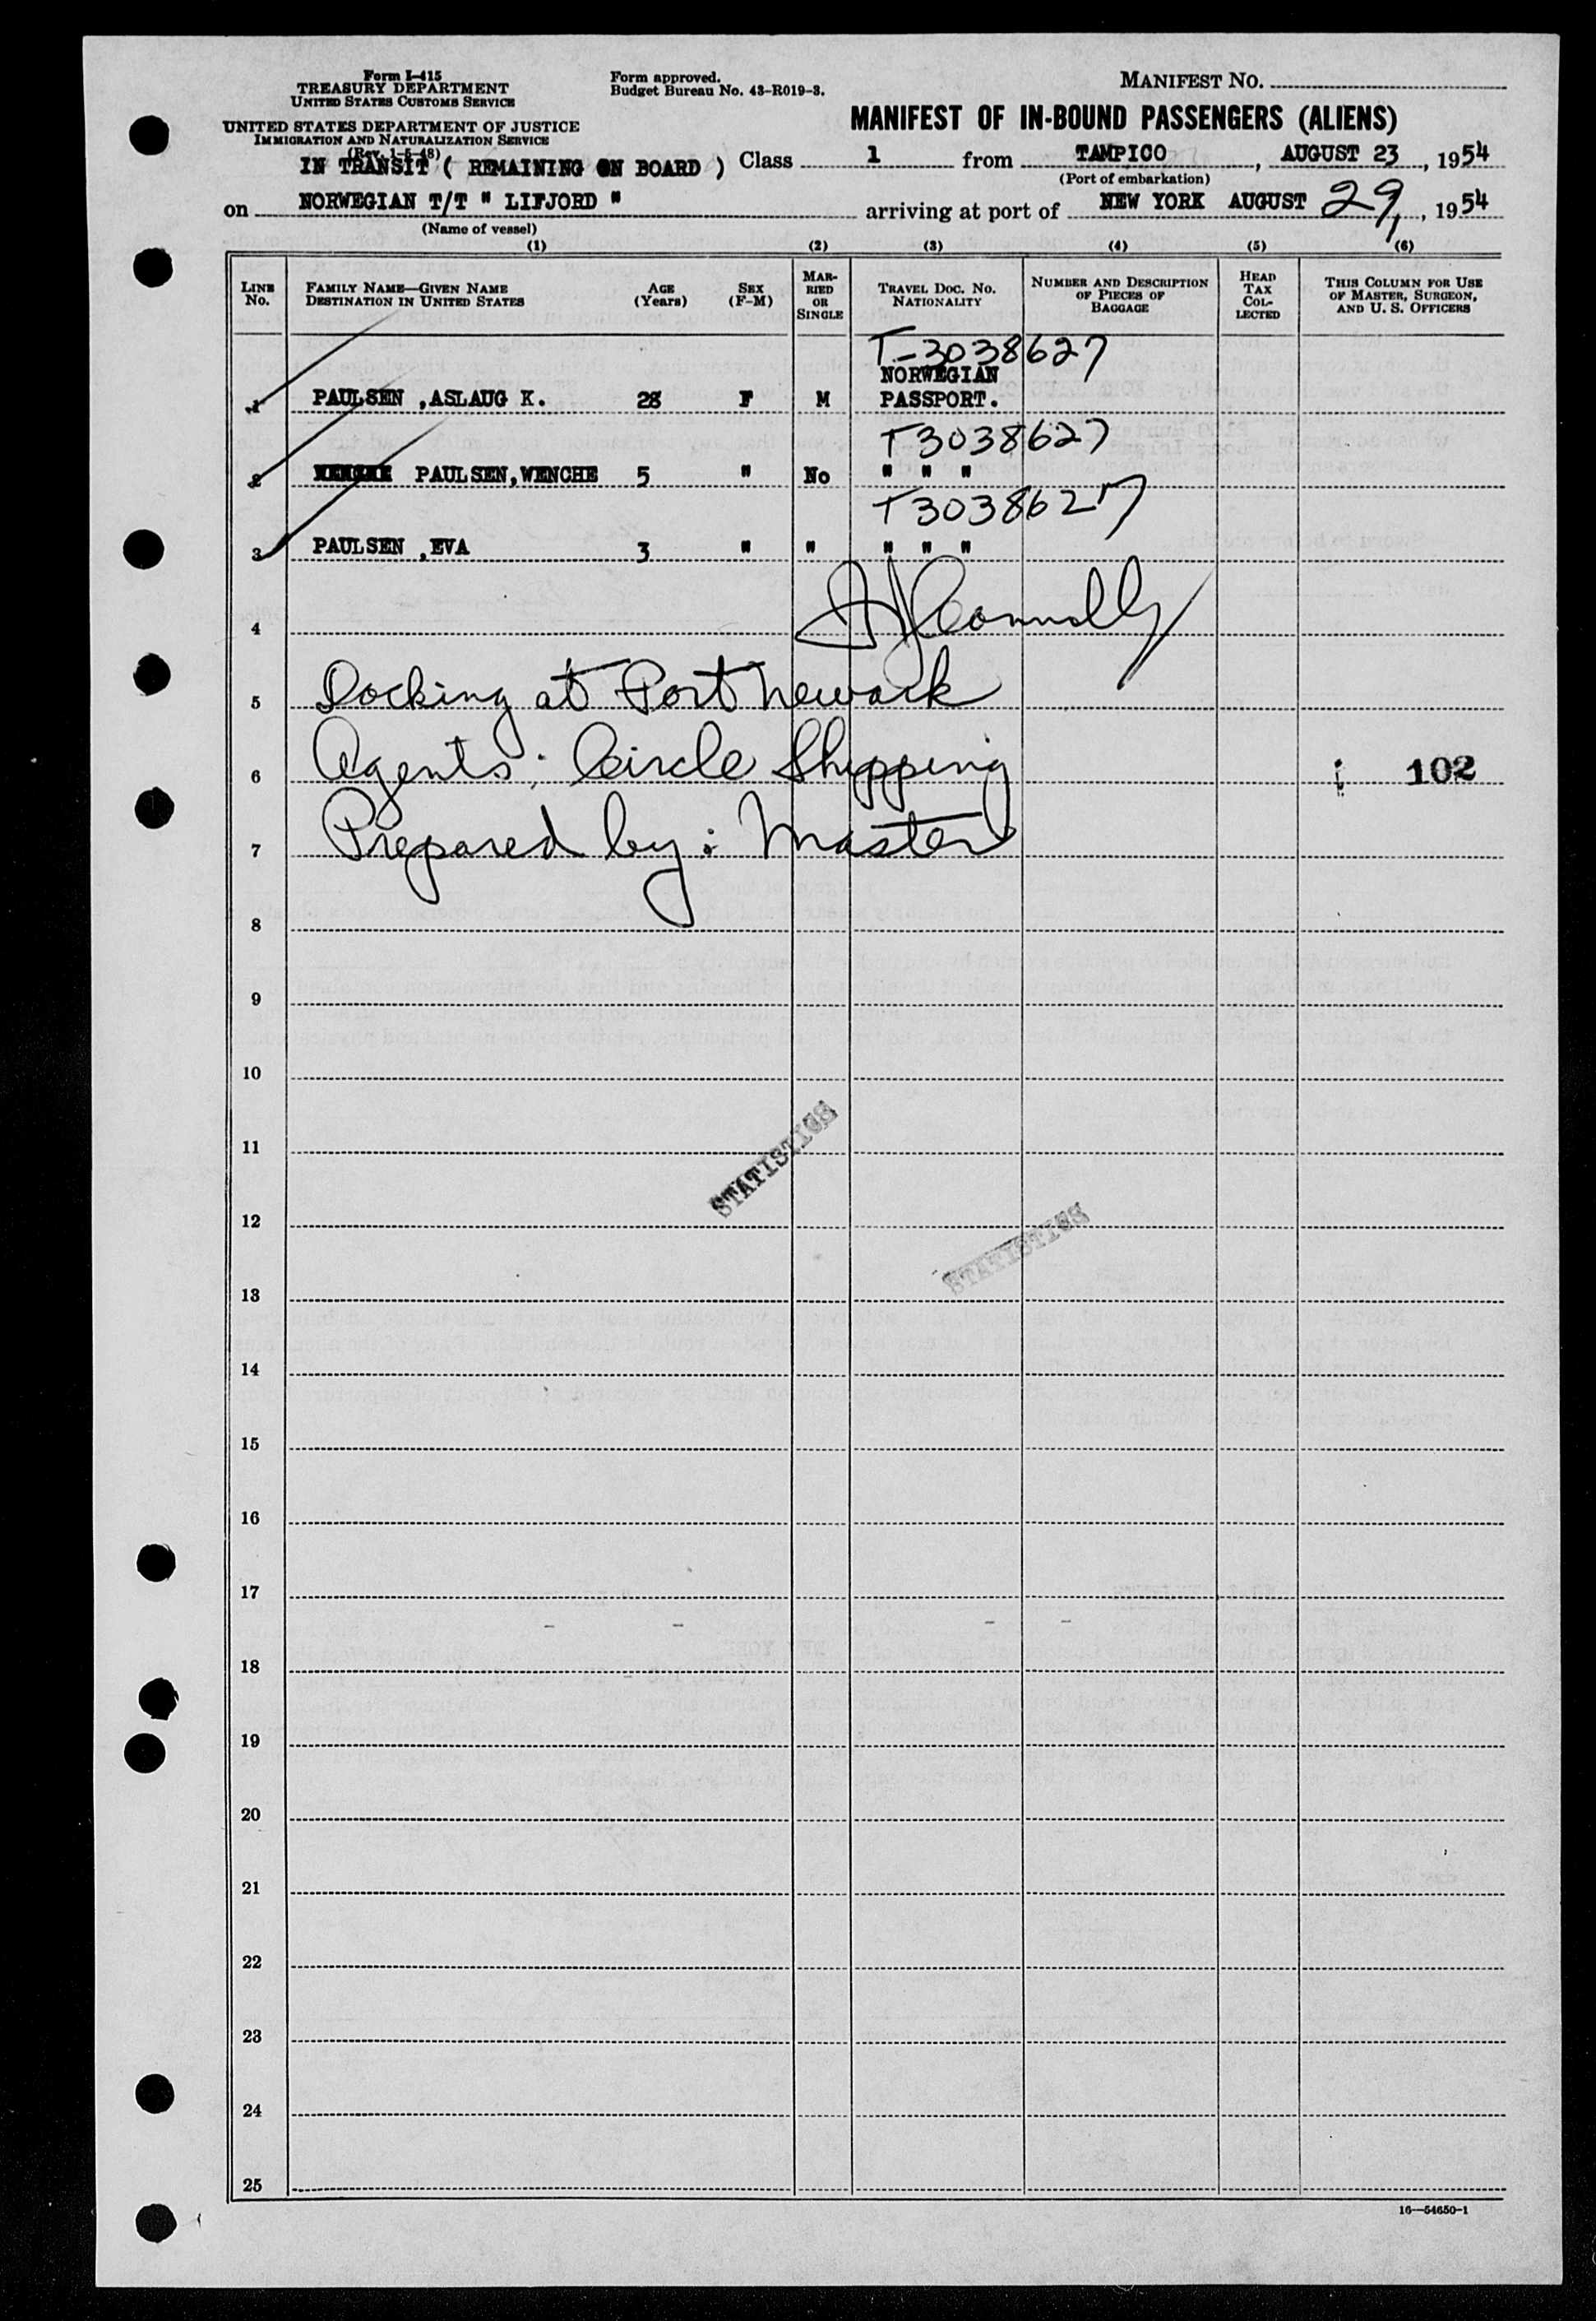 Form I-415
TREASURY DEPARTMENT
UNITED STATES CUSTOMS SERVICE
UNITED STATES DEPARTMENT OF JUSTICE
IMMIGRATION AND NATURALIZATION SERVICE
(Rev. 1-5-48)
Form approved.
Budget Bureau No. 43-R019-3.
MANIFEST NO.
MANIFEST OF IN-BOUND PASSENGERS (ALIENS)
IN TRANSIT ( REMAINING ON BOARD ) Class 1 from TAMPICO, AUGUST 23, 1954
(Port of embarkation)
on NORWEGIAN T/T " LIFJORD " arriving at port of NEW YORK AUGUST 29, 1954
(Name of vessel)
(1) (2) (3) (4) (5) (6)
LINE No.
FAMILY NAME—GIVEN NAME
DESTINATION IN UNITED STATES
AGE (Years)
SEX (F-M)
MARRIED OR SINGLE
TRAVEL DOC. NO.
NATIONALITY
NUMBER AND DESCRIPTION OF PIECES OF BAGGAGE
HEAD TAX COLLECTED
THIS COLUMN FOR USE OF MASTER, SURGEON, AND U. S. OFFICERS
T-3038627
NORWEGIAN
1 PAULSEN ,ASLAUG K. 28 F M PASSPORT.
T3038627
2 PAULSEN,WENCHE 5 " No " " "
T3038627
3 PAULSEN ,EVA 3 " " " " "
4 Connolly
5 Docking at Port Newark
6 Agents; Circle Shipping 102
7 Prepared by: Master
8
9
10
11
STATISTICS
12
STATISTICS
13
14
15
16
17
18
19
20
21
22
23
24
25
16—54650-1